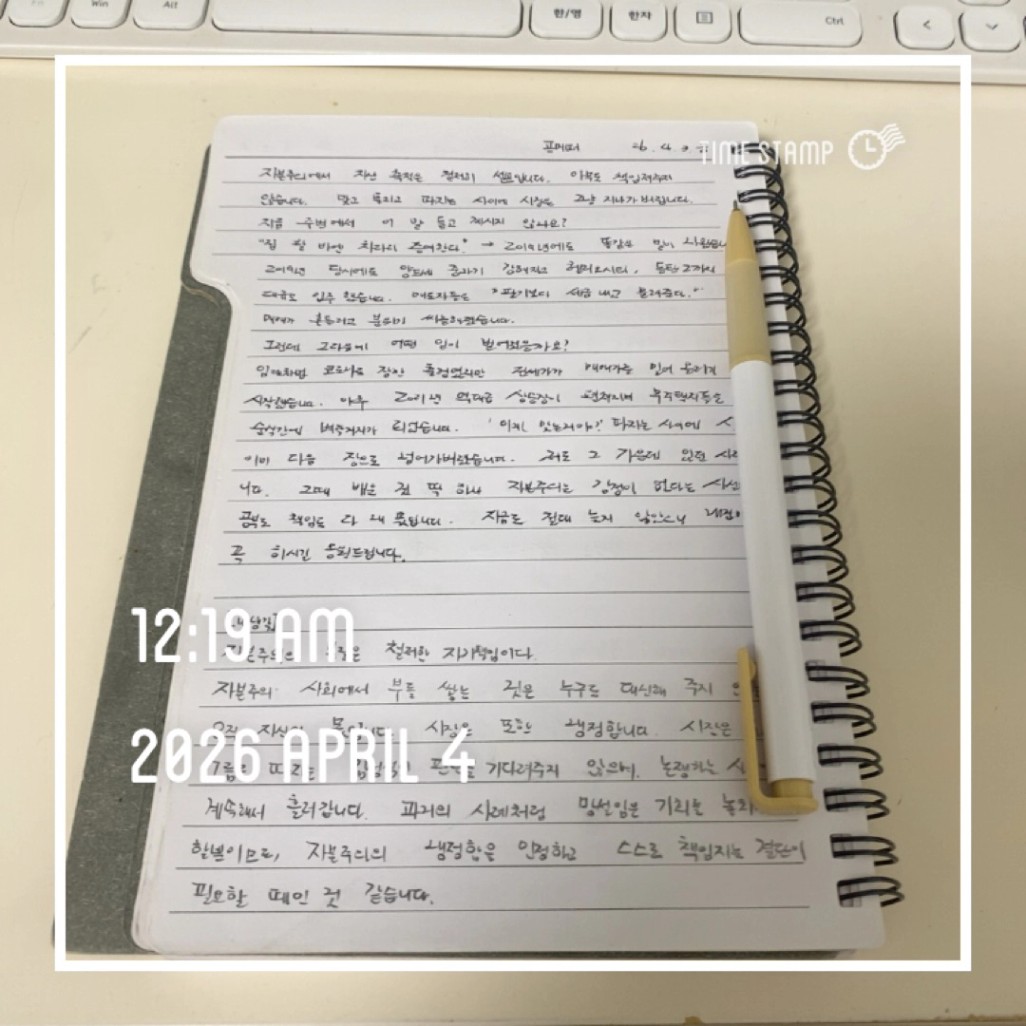 Win
Alt
한/영
한자
Ctrl
TIME STAMP
자본주의에서 자산 축적은 철저히 셀프입니다. 아무도 책임져주지
않습니다. 맞고 틀리고 따지는 사이에 시장은 그냥 지나가 버립니다.
지금 주변에서 이 말 듣고 계시지 않나요?
"집 팔 바엔 차라리 증여한다." → 2019년에도 똑같은 말이
2019년 당시에도 양도세 중과가 강해지고
대규모 입주 했습니다. 매도자들은 "팔기보다 세금 내고 물려준다."
매매가 흔들리고 분위기 싸늘해졌습니다.
그런데 그 다음에 어떤 일이 벌어졌을까요?
임대차법 코로나로 잠깐 출렁였지만 전세가가 매매가를 밀어 올리기
시작했습니다. 이후 2021년 역대급 상승장이 펼쳐지며 무주택자들은
순식간에 벼락거지가 되었습니다. '이게 맞는거야?' 따지는 사이에
이미 다음 장으로 넘어가버렸습니다. 저도 그 가운데 있던
니다. 그때 배운 것 딱 하나 자본주의는 감정이 없다는
공부도 책임도 다 내 몫입니다. 지금도 절대 늦지 않았으니
꼭 하시길 응원드립니다.
12:19 AM
철저한 자기책임이다.
자본주의 사회에서 부를 쌓는 것은 누구도 대신해 주지
오직 자신의 몫입니다. 시장은 또한 냉정합니다. 시장은
기다려주지 않으며, 논쟁하는
2026 APRIL 4
계속해서 흘러갑니다. 과거의 사례처럼 망설임은 기회를
자본주의의 냉정함을 인정하고 스스로 책임지는 결단이
필요할 때인 것 같습니다.